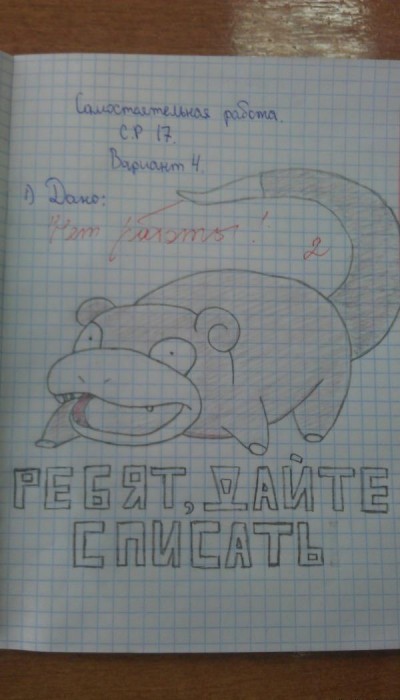 Самостоятельная работа.
С.Р 17.
Вариант 4.
1) Дано:
Нет работы!
2
РЕБЯТ, ДАЙТЕ
СПИСАТЬ